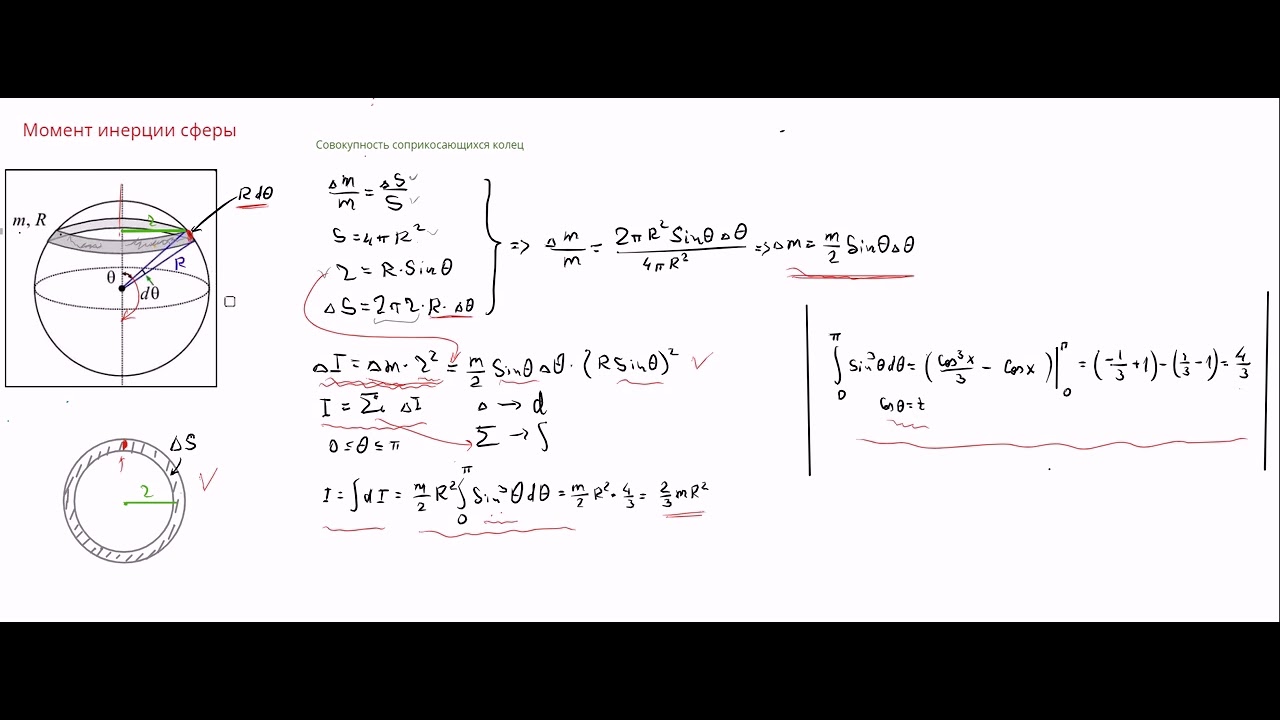 Момент инерции сферы
Совокупность соприкосающихся колец
m, R
R dθ
r
R
θ
dθ
Δm/m = ΔS/S
S = 4πR²
r = R·Sinθ
ΔS = 2πr·R·Δθ
=> Δm/m = 2πR²SinθΔθ / 4πR² => Δm = m/2 SinθΔθ
ΔI = Δm·r² = m/2 SinθΔθ·(RSinθ)²
I = Σᵢ ΔI
Δ → d
0 ≤ θ ≤ π
Σ → ∫
I = ∫dI = m/2 R² ∫₀^π Sin³θdθ = m/2 R²·4/3 = 2/3 mR²
∫₀^π Sin³θdθ = (Cos³x/3 - Cosx)|₀^π = (-1/3 + 1) - (1/3 - 1) = 4/3
Cosθ = t
ΔS
r